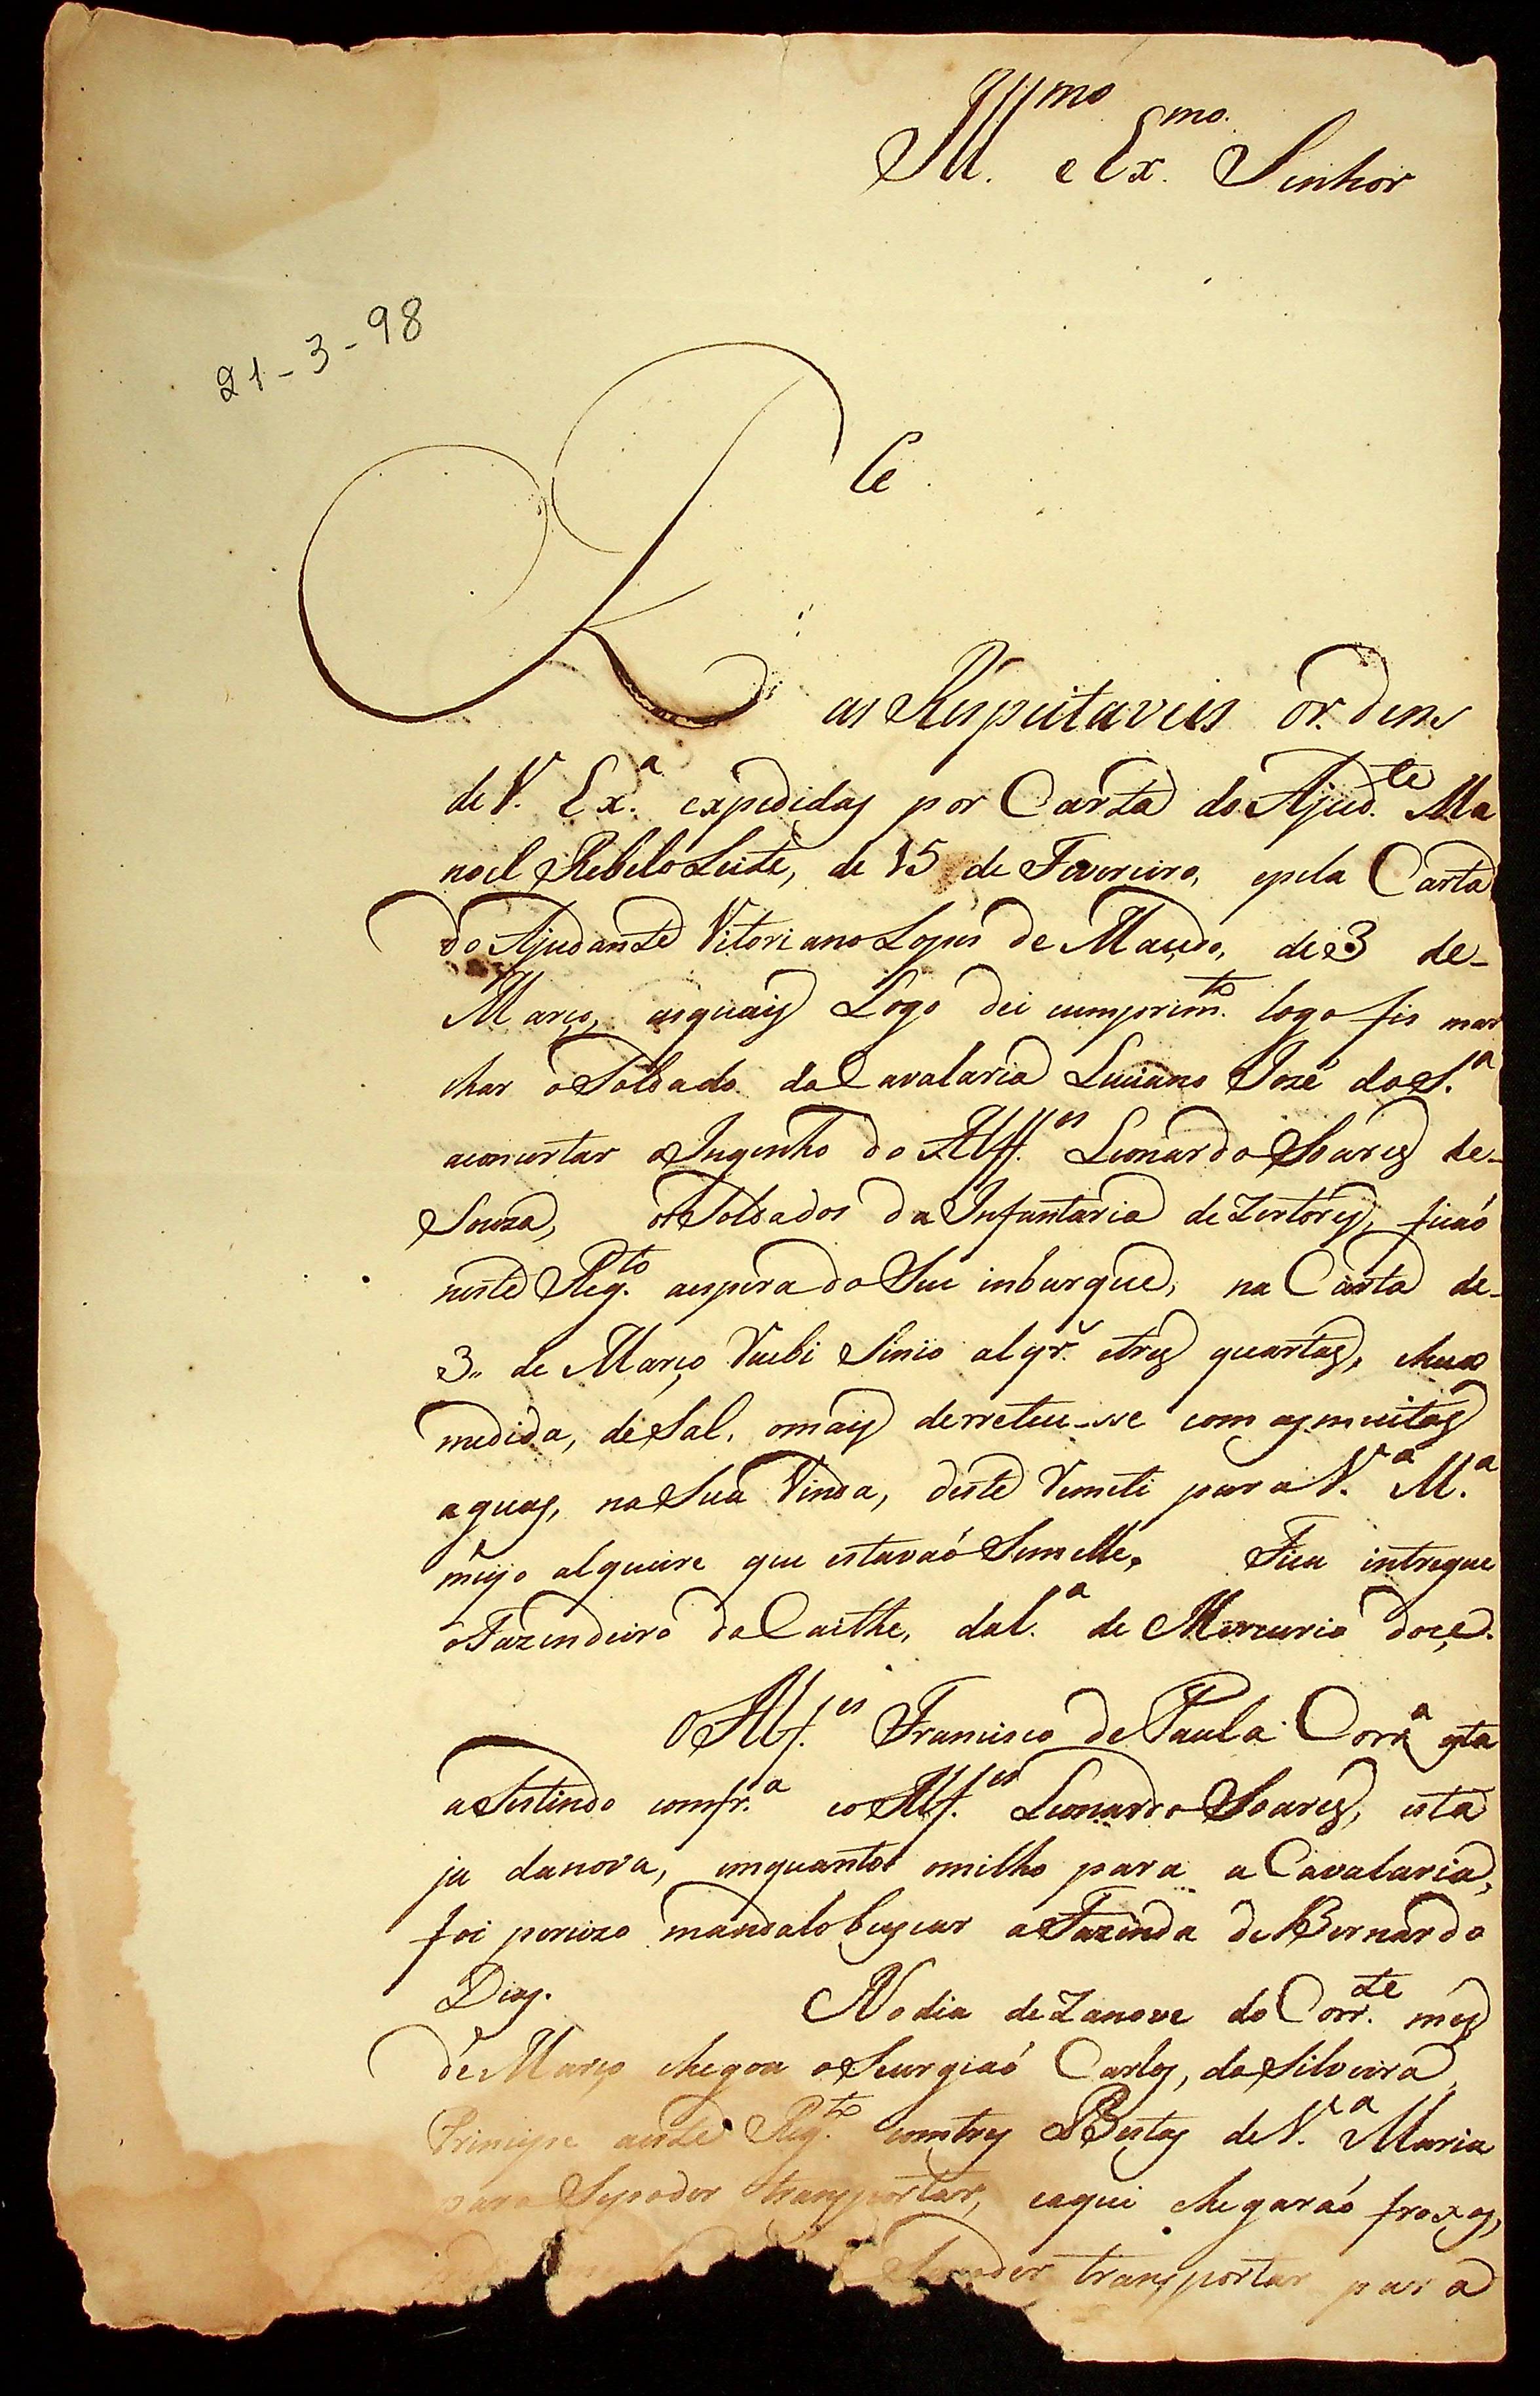 Ill.mo e Ex.mo Senhor
21-3-98
R Ce
as Respeitaveis ordens
de V. Ex.a expedidas por Carta do Ajud.te Ma
noel Rebelo Leite, de 15 de Fevereiro, epela Carta
do Ajudante Vitoriano Lopes de Macedo, de 3 de-
Março, asquais Logo dei cumprim.to logo fis mar
char o Soldado da Cavalaria Luciano José da S.a
aconcertar o Ingenho do Alff.es Leonardo Soares de-
Souza, os Soldados da Infantaria deZertôres, ficaó
neste Reg.to aespera do Seu inbarque, na Carta de-
3,, de Março Recebi Sinco alqr.s etres quartas, ehua
medida, de Sal, omais derreteu-sse com asmuitas
aguas, na Sua Vinda, deste Remeti para V.a M.a
meyo alqueire que estavaó Sem elle. Fica intregue
o Fazendeiro do Caithe, da L.a de Mercurio doçe.
O Alf.es Francisco de Paula Corr.a esta
aSestindo comfr.a eo Alf.es Leonardo Soares, esta
ja danova, emquanto omilho para a Cavalaria,
foi percizo mandalo buscar a Fazenda de Bernardo
Dias. No dia deZanove do Corr.te mes
de Março chegou o Seurgiaó Carlos, da Silveira
Principe aeste Reg.to comtres Bestas de V.a Maria
para Sepoder transportar, eaqui chegaraó froxas,
Sepoder transportar para